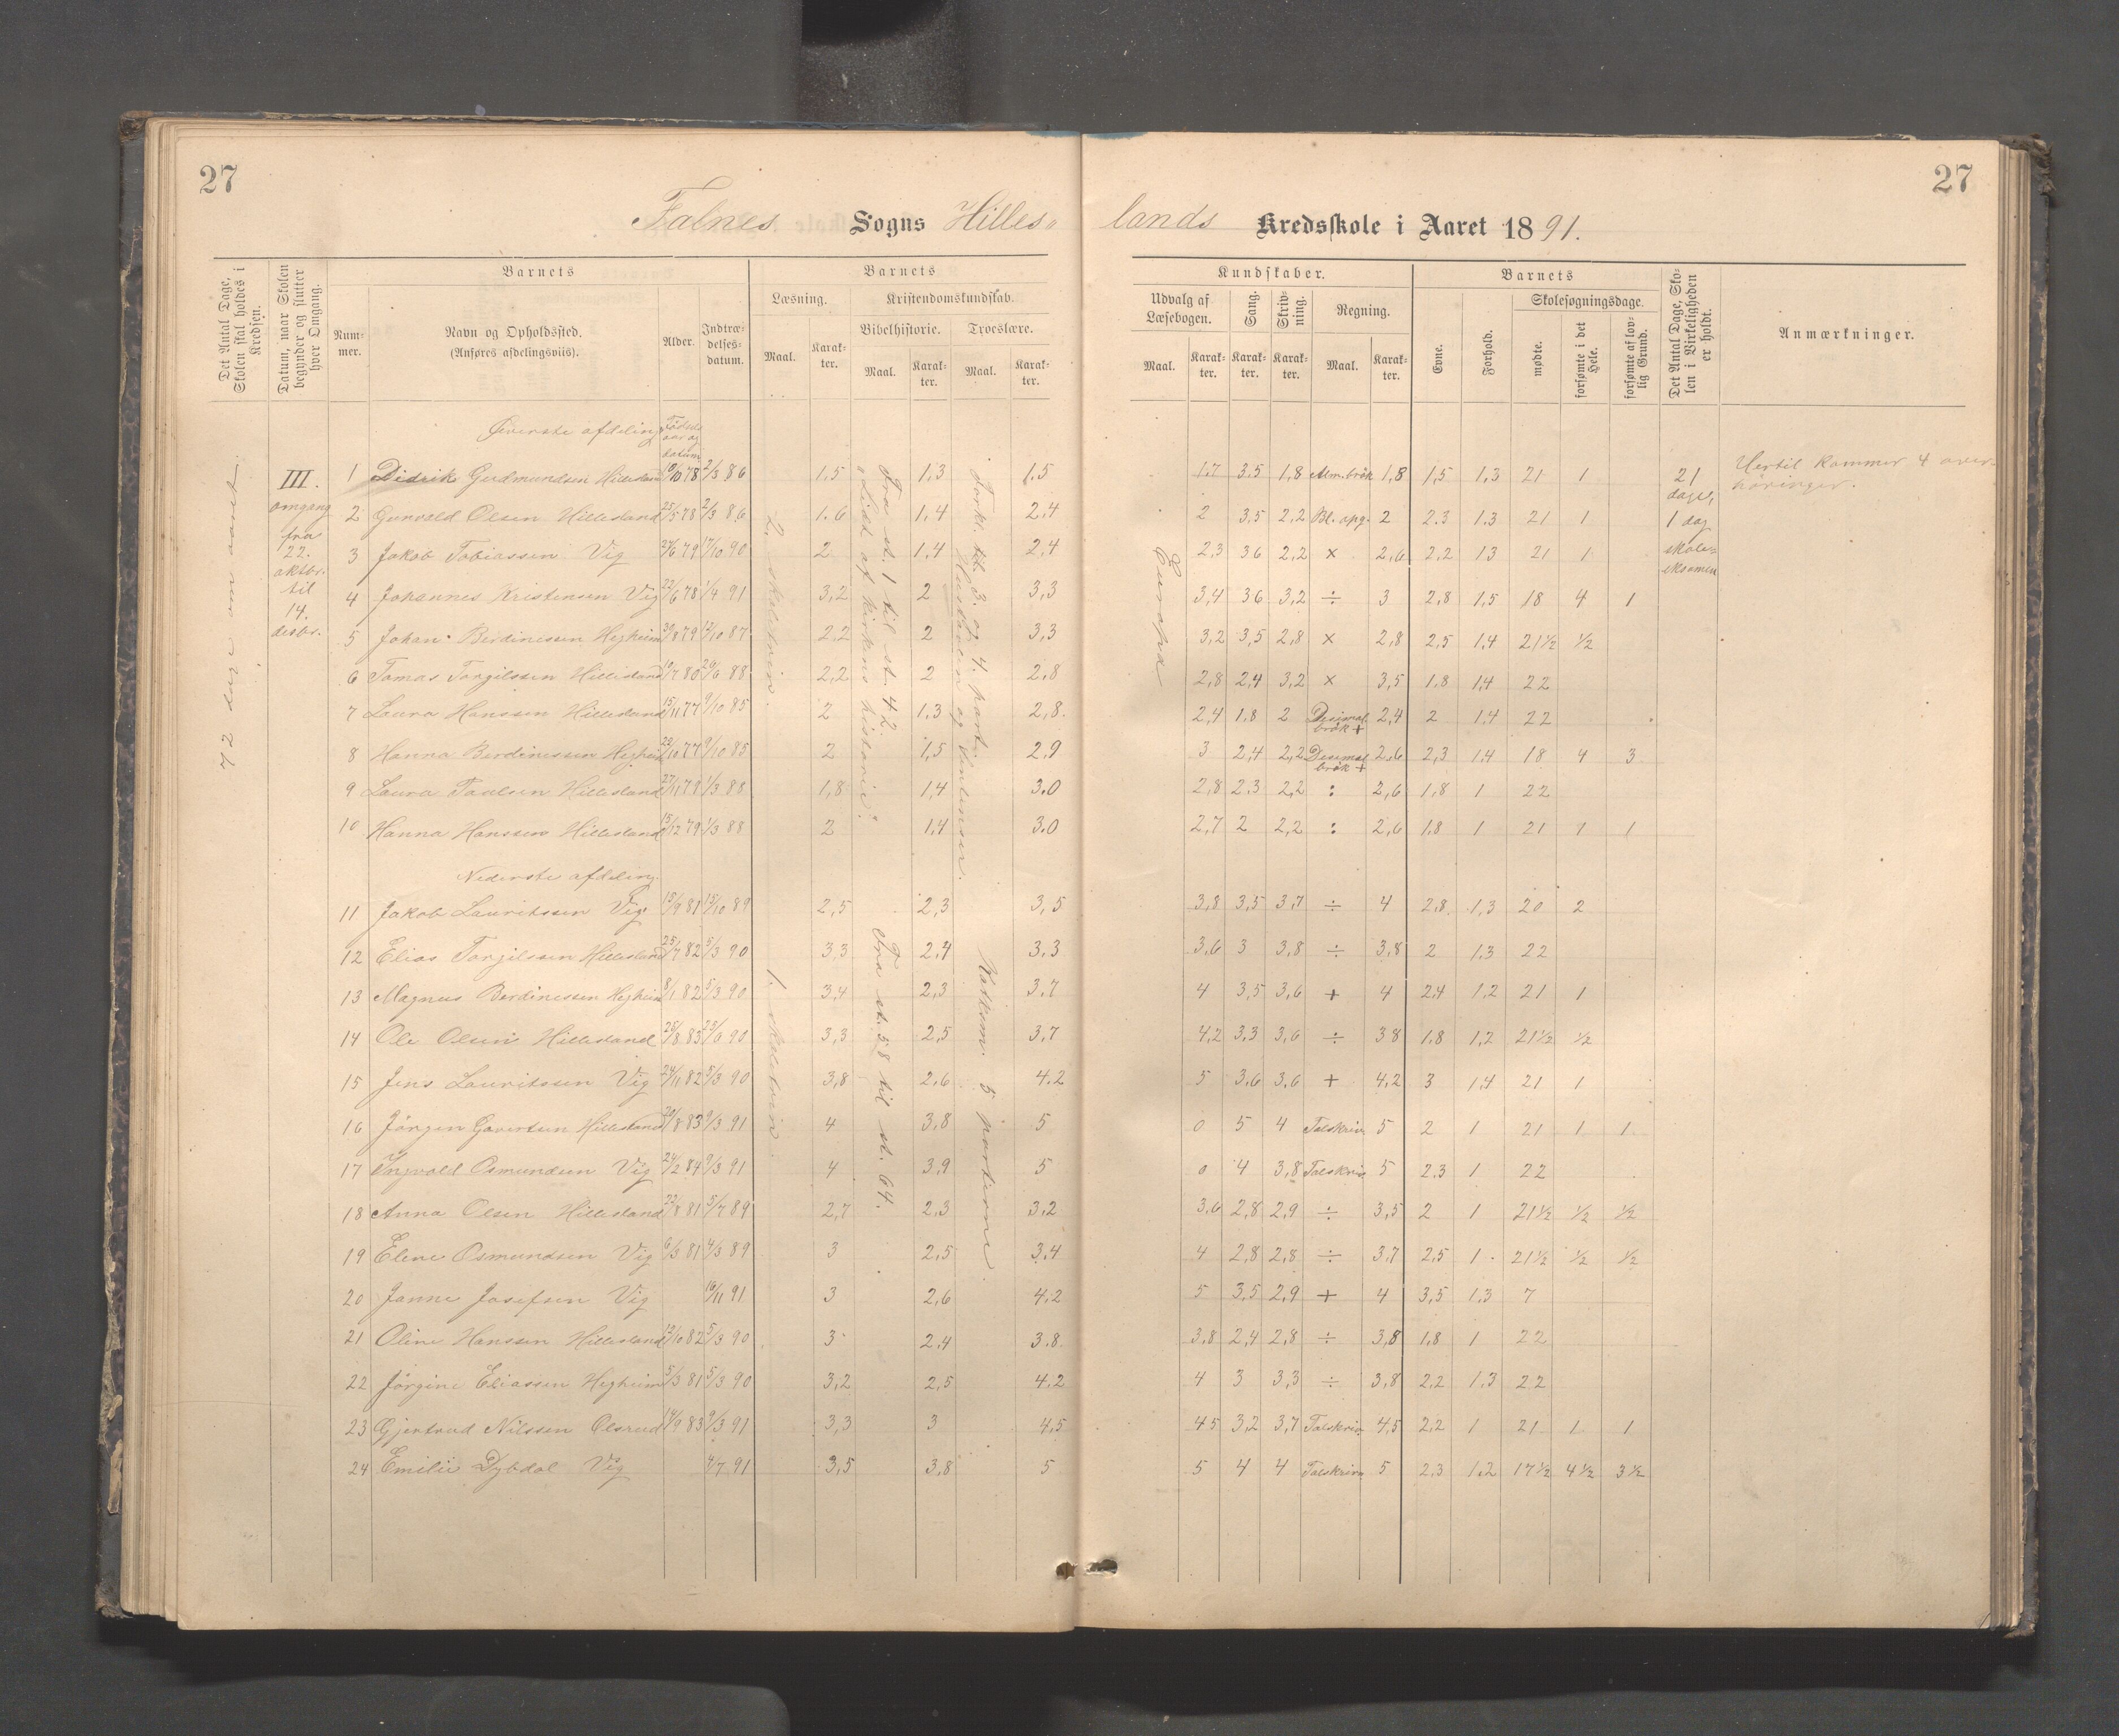 27
27
Falnes Sogns Hilles-
lands Kredsskole i Aaret 1891.
Det Antal Dage, Skolen skal holdes i Kredsen.
Datum, naar Skolen begynder og slutter hver Omgang.
Barnets
Nummer.
Navn og Opholdssted.
(Anføres afdelingsviis).
Alder.
Indtrædelsesdatum.
Barnets
Læsning.
Maal.
Karakter.
Kristendomskundskab.
Bibelhistorie.
Maal.
Karakter.
Troeslære.
Maal.
Karakter.
Kundskaber.
Udvalg af Læsebogen.
Maal.
Karakter.
Sang.
Karakter.
Skrivning.
Karakter.
Regning.
Maal.
Karakter.
Barnets
Evne.
Forhold.
Skolesøgningsdage.
mødte.
forsømte i det Hele.
forsømte af lovlig Grund.
Det Antal Dage, Skolen i Virkeligheden er holdt.
Anmærkninger.
72 om aaret
III. omgang fra 22. oktbr. til 14. desbr.
Øverste afdeling
Fødselsaar og datum
2. skoletrin.
Fra st. 1 til st. 42.
Lidt af kirkens historie.
Forkl. til 3. og 4. part.
Europa
21 dage, 1 dag skoleeksamen
Hertil kommer 4 overhøringer.
1 Didrik Gudmundsen Hillesland 10/10 78 2/3 86 1,5 1,3 1,5 1,7 3,5 1,8 Alm. brøk 1,8 1,5 1,3 21 1
2 Gunvald Olsen Hillesland 25/5 78 2/3 86 1.6 1,4 2,4 2 3,5 2,2 Bl. opg. 2 2.3 1.3 21 1
3 Jakob Tobiassen Vig 27/6 79 17/10 90 2 1,4 2,4 2,3 3 6 2,2 × 2,6 2,2 1 3 21 1
4 Johannes Kristensen Vig 22/6 78 1/4 91 3,2 2 3,3 3,4 3 6 3,2 ÷ 3 2,8 1,5 18 4 1
5 Johan Berdinessen Hegheim 30/8 79 12/10 87 2,2 2 3,3 3,2 3,5 2,8 × 2,8 2,5 1,4 21½ ½
6 Tomas Torgilssen Hillesland 10/7 80 29/6 88 2,2 2 2,8 2,8 2,4 3,2 × 3,5 1,8 1,4 22
7 Laura Hanssen Hillesland 15/11 77 9/10 85 2 1,3 2,8. 2,4 1,8 2 Desimalbrøk + 2,4 2 1,4 22
8 Hanna Berdinessen Hegheim 29/10 77 9/10 85 2 1,5 2,9 3 2,4 2,2 Desimalbrøk + 2,6 2,3 1,4 18 4 3
9 Laura Paulsen Hillesland 27/11 79 1/3 88 1,8 1,4 3.0 2,8 2.3 2,2 : 2,6 1,8 1 22
10 Hanna Hanssen Hillesland 15/12 79 1/3 88 2 1,4 3.0 2,7 2 2,2 : 2,6 1,8 1 21 1 1
Nederste afdeling.
1. skoletrin.
Fra st. 58 til st. 64.
Katekism. 5 parterne.
11 Jakob Lauritssen Vig 15/9 81 15/10 89 2,5 2,3 3,5 3,8 3,5 3,7 ÷ 4 2,8. 1,3 20 2
12 Elias Torgilssen Hillesland 25/7 82 5/3 90 3,3 2,4 3.3 3,6 3 3,8 ÷ 3,8 2 1.3 22
13 Magnus Berdinessen Hegheim 8/1 82 5/3 90 3,4 2,3 3.7 4 3,5 3,6 + 4 2,4 1,2 21 1
14 Ole Olsen Hillesland 25/8 83 23/6 90 3,3 2,5 3,7 4,2 3,3 3,6 ÷ 3 8 1.8 1,2 21½ ½
15 Jens Lauritssen Vig 24/11 82 5/3 90 3,8 2.6 4.2 5 3.6 3.6 + 4,2 3 1,4 21 1
16 Jörgen Govertsen Hillesland 20/8 83 9/3 91 4 3,8 5 0 5 4 Talskriv. 5 2 1 21 1 1
17 Ingvald Osmundsen Vig 24/2 84 9/3 91 4 3,9 5 0 4 3,8 Talskriv. 5 2.3 1 22
18 Anna Olsen Hillesland 22/8 81 5/7 89 2,7 2.3 3,2 3,6 2,8 2,9 ÷ 3,5 2 1 21½ ½ ½
19 Elene Osmundsen Vig 6/3 81 4/3 89 3 2,5 3.4 4 2,8 2,8 ÷ 3,7 2,5 1 21½ ½ ½
20 Janne Josefsen Vig 16/11 91 3 2,6 4.2 5 3,5 2,9 + 4 3,5 1.3 7
21 Oline Hanssen Hillesland 12/10 82 5/3 90 3 2,4 3.8 3,8 2,4 2,8 ÷ 3,8 1,8 1 22
22 Jörgine Eliassen Hegheim 5/3 81 5/3 90 3,2 2,5 4.2 4 3 3,3 ÷ 3,8 2,2 1.3 22
23 Gjertrud Nilssen Olsrud 14/9 83 9/3 91 3,3 3 4,5 4 5 3,2 3,7 Talskriv. 4,5 2,2 1 21 1 1
24 Emilie Dybdal Vig 4/7 91 3,5 3,8 5 5 4 4 Talskriv. 5 2,3 1,2 17½ 4½ 3½